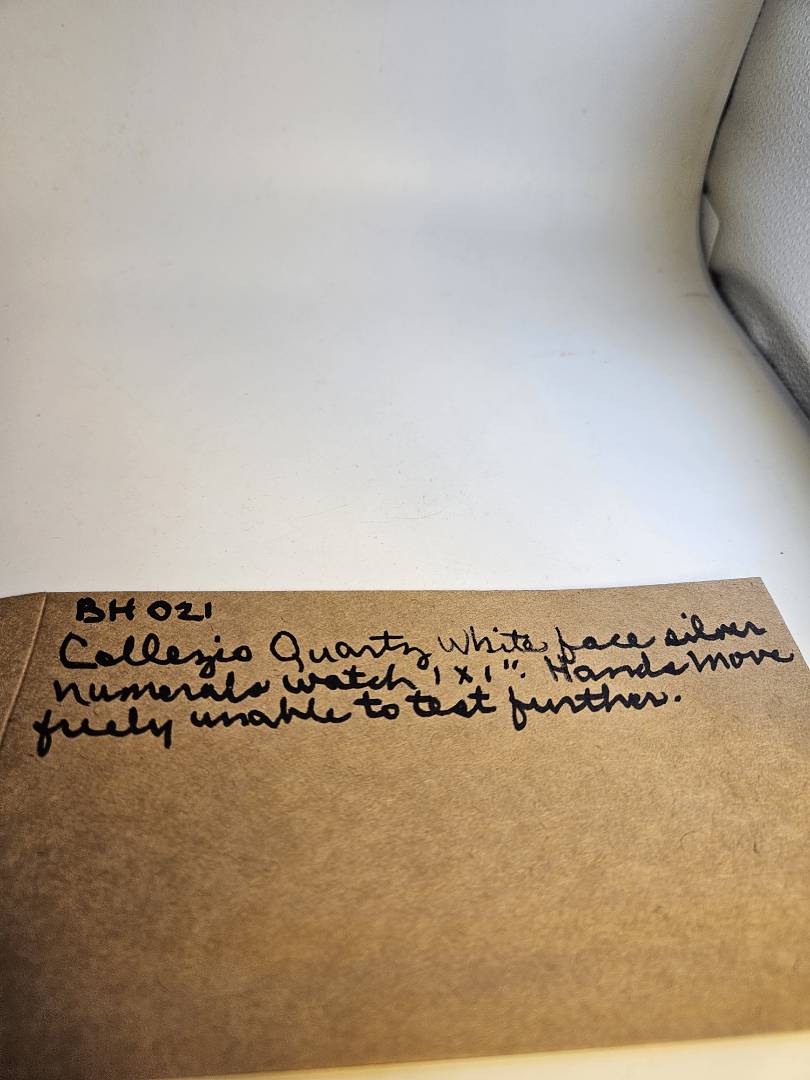 BH 021
Collezio Quartz White face silver
numerals watch 1 x 1". Hands move
freely unable to test further.